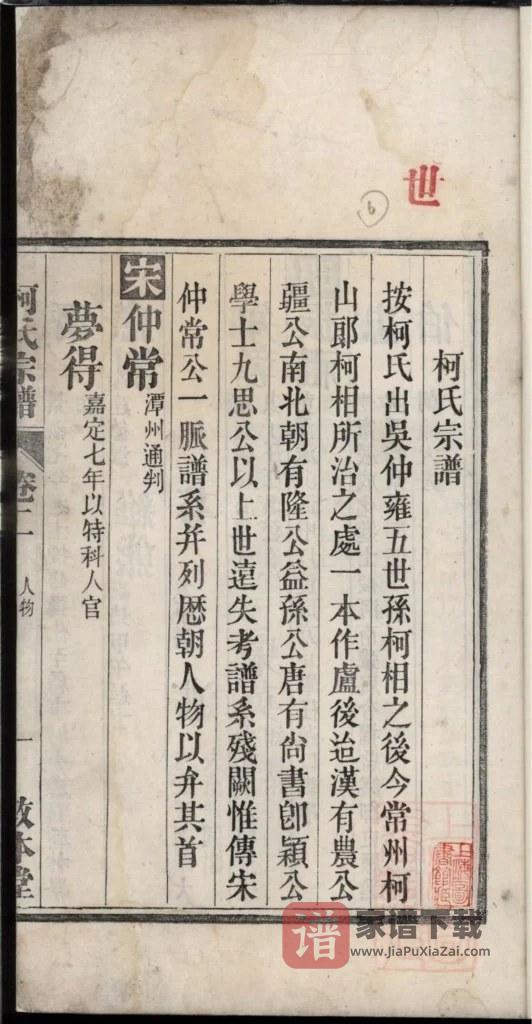 世
6
柯氏宗譜
按柯氏出吳仲雍五世孫柯相之後今常州柯
山郎柯相所治之處一本作盧後迨漢有農公
疆公南北朝有隆公益孫公唐有尙書郎穎公
學士九思公以上世遠失考譜系殘闕惟傳宋
仲常公一脈譜系幷列歷朝人物以弁其首
宋仲常 潭州通判
夢得 嘉定七年以特科入官
柯氏宗譜 卷二 人物 一 敦本堂
上海圖書館藏
谱 家谱下载
www.JiaPuXiaZai.com